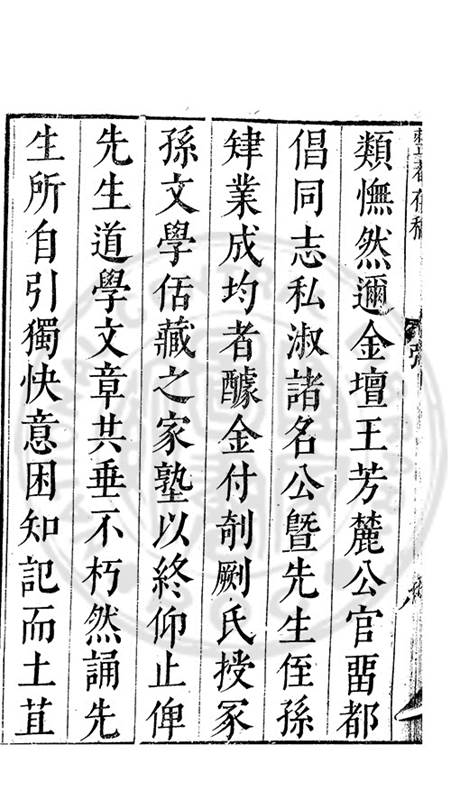 整菴存稿
類憮然邇金壇王芳麓公官畱都
倡同志私淑諸名公曁先生侄孫
肄業成均者醵金付剞劂氏授冢
孫文學佸藏之家塾以終仰止俾
先生道學文章共垂不朽然誦先
生所自引獨快意困知記而土苴